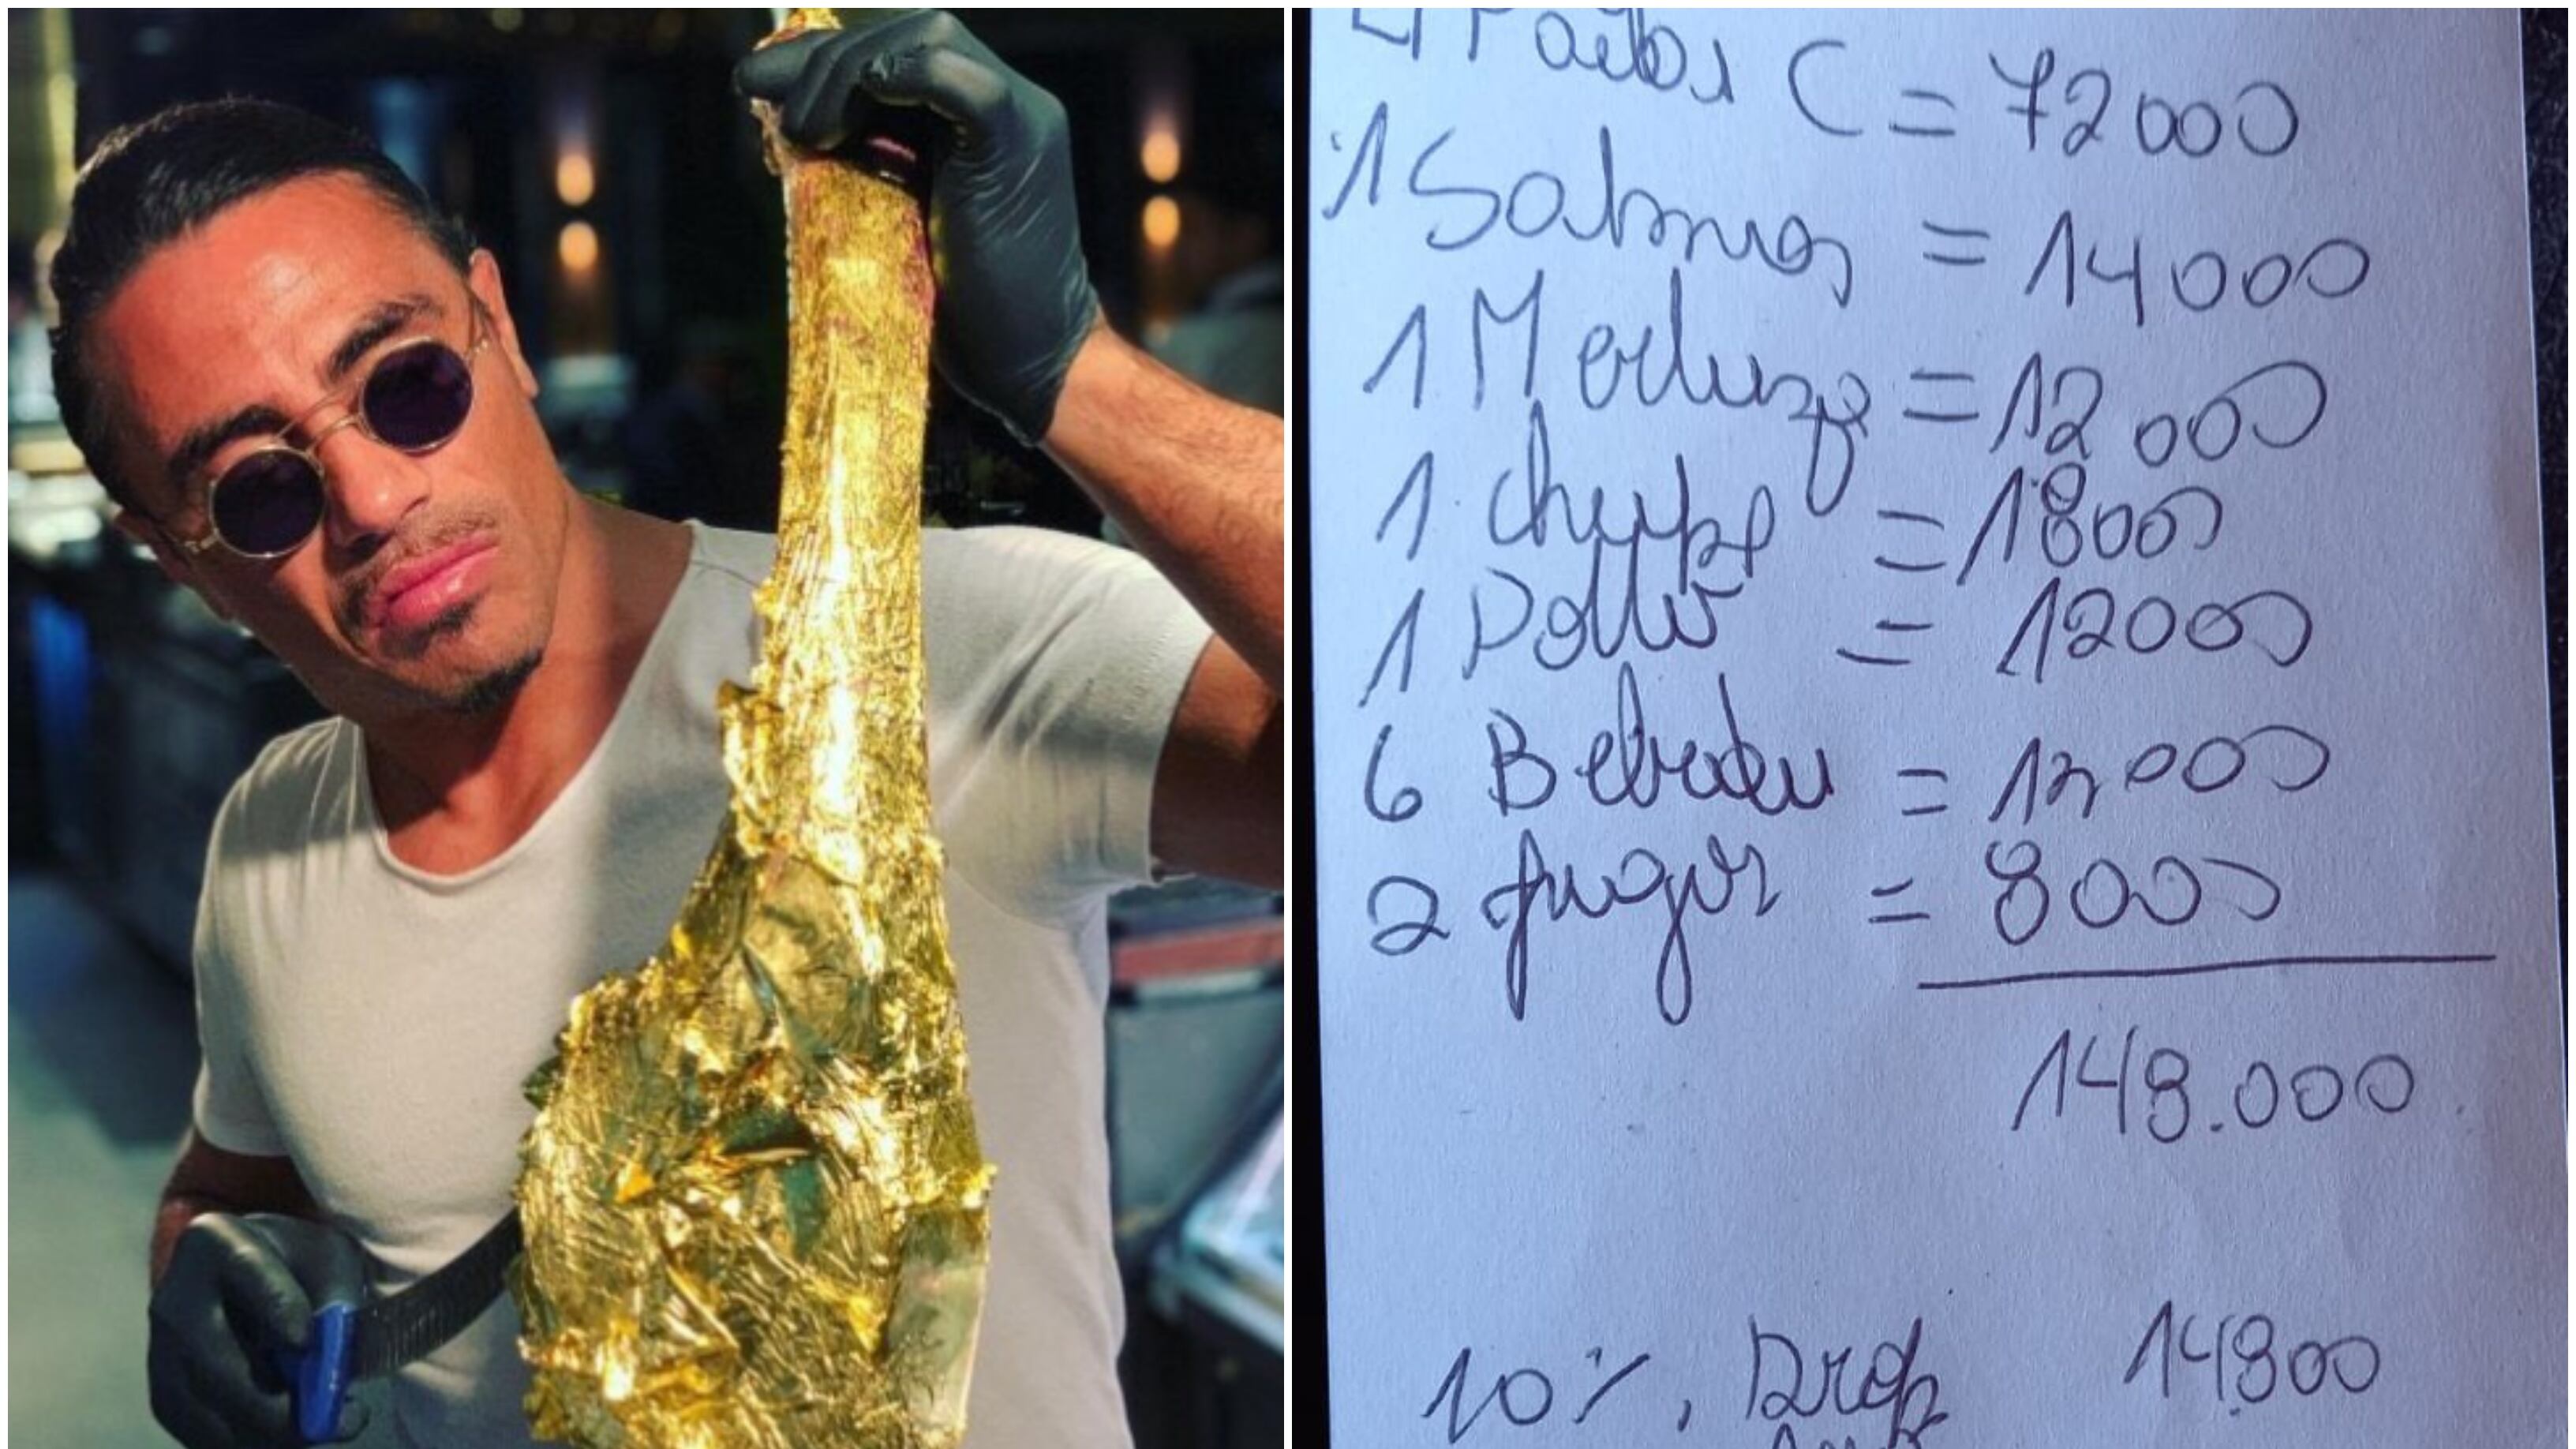 4 Pailas C = 72000
1 Salmon = 14000
1 Merluza = 12000
1 Chupe = 18000
1 Pollo = 12000
6 Bebidas = 12000
2 Jugos = 8000
148.000
10%, 14800